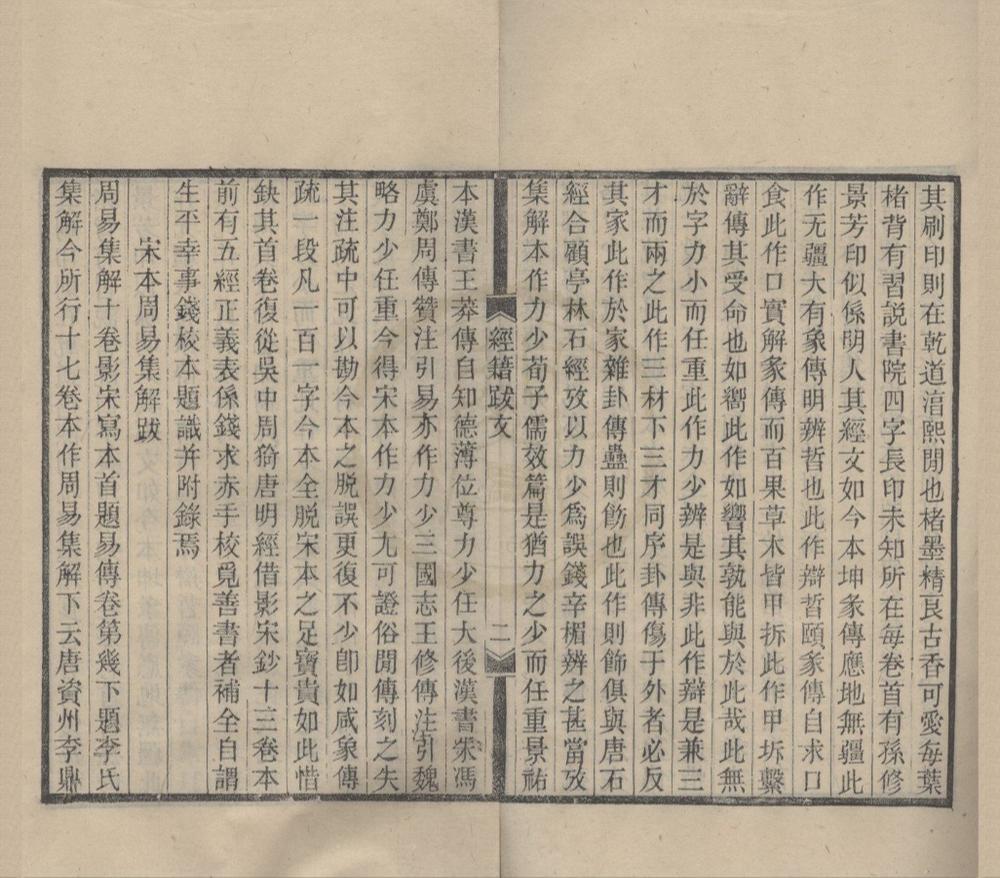 其刷印則在乾道淯熙閒也楮墨精良古香可愛每葉
楮背有習説書院四字長印未知所在每卷首有孫修
景芳印似係明人其經文如今本坤彖傳應地無疆此
作无疆大有象傳明辨哲也此作辯晢頤彖傳自求口
食此作口實解彖傳而百果草木皆甲拆此作甲坼繫
辭傳其受命也如嚮此作如響其孰能與於此哉此無
於字力小而任重此作力少辨是與非此作辯是兼三
才而兩之此作三材下三才同序卦傳傷于外者必反
其家此作於家雜卦傳蠱則飭也此作則飾俱與唐石
經合顧亭林石經攷以力少爲誤錢辛楣辨之甚當攷
集解本作力少荀子儒效篇是猶力之少而任重景祐
經籍跋文
二
本漢書王莽傳自知德薄位尊力少任大後漢書朱馮
虞鄭周傳贊注引易亦作力少三國志王修傳注引魏
略力少任重今得宋本作力少尤可證俗閒傳刻之失
其注疏中可以勘今本之脱誤更復不少卽如咸象傳
疏一段凡一百一字今本全脱宋本之足寶貴如此惜
缺其首卷復從吳中周猗唐明經借影宋鈔十三卷本
前有五經正義表係錢求赤手校覓善書者補全自謂
生平幸事錢校本題識并附錄焉
宋本周易集解跋
周易集解十卷影宋寫本首題易傳卷第幾下題李氏
集解今所行十七卷本作周易集解下云唐資州李鼎